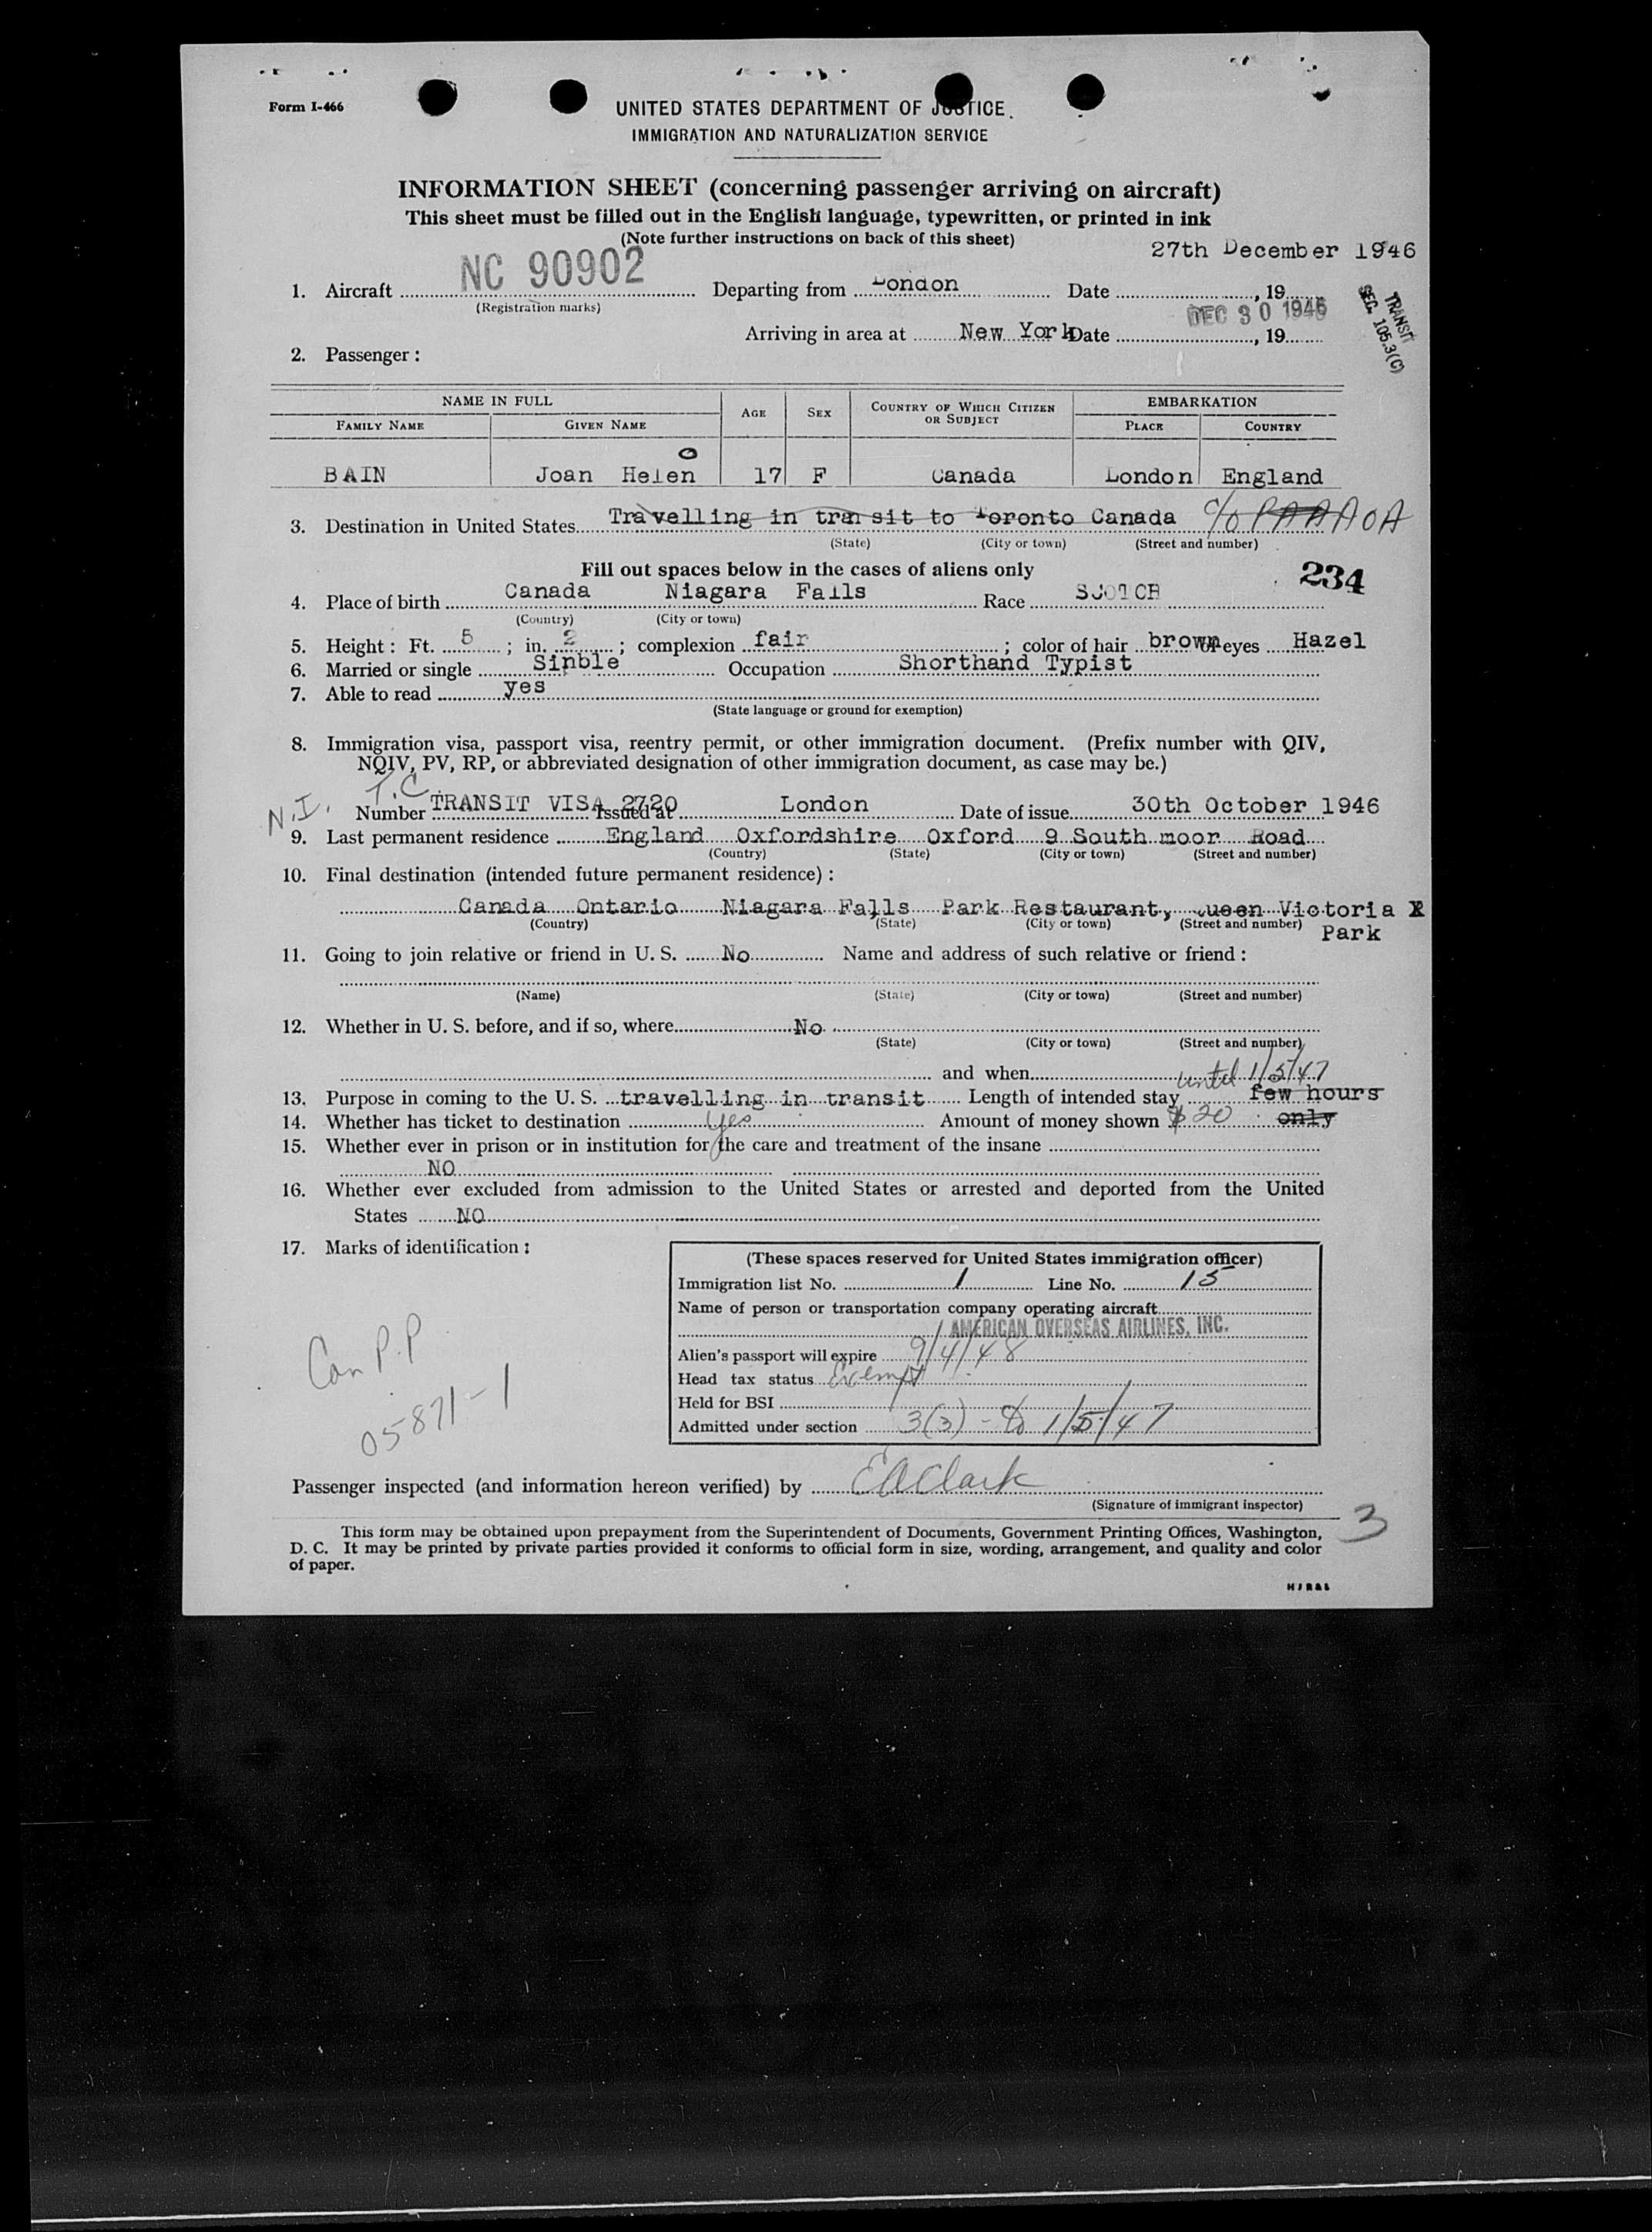 Form I-466
UNITED STATES DEPARTMENT OF JUSTICE
IMMIGRATION AND NATURALIZATION SERVICE
INFORMATION SHEET (concerning passenger arriving on aircraft)
This sheet must be filled out in the English language, typewritten, or printed in ink
(Note further instructions on back of this sheet)
27th December 1946
1. Aircraft NC 90902 Departing from London Date , 19
(Registration marks)
DEC 30 1946
TRANSIT
SEC. 105.3(C)
Arriving in area at New York Date , 19
2. Passenger:
NAME IN FULL AGE SEX COUNTRY OF WHICH CITIZEN OR SUBJECT EMBARKATION
FAMILY NAME GIVEN NAME PLACE COUNTRY
BAIN Joan Helen 17 F Canada London England
3. Destination in United States Travelling in transit to Toronto Canada c/o PAA AOA
(State) (City or town) (Street and number)
Fill out spaces below in the cases of aliens only
234
4. Place of birth Canada Niagara Falls Race SCOTCH
(Country) (City or town)
5. Height: Ft. 5 ; in. 2 ; complexion fair ; color of hair brown eyes Hazel
6. Married or single Sinble Occupation Shorthand Typist
7. Able to read yes
(State language or ground for exemption)
8. Immigration visa, passport visa, reentry permit, or other immigration document. (Prefix number with QIV,
NQIV, PV, RP, or abbreviated designation of other immigration document, as case may be.)
T.C
N.I. Number TRANSIT VISA 2720 Issued at London Date of issue 30th October 1946
9. Last permanent residence England Oxfordshire Oxford 9 South moor Road
(Country) (State) (City or town) (Street and number)
10. Final destination (intended future permanent residence):
Canada Ontario Niagara Falls Park Restaurant, Queen Victoria X
(Country) (State) (City or town) (Street and number) Park
11. Going to join relative or friend in U. S. No Name and address of such relative or friend:
(Name) (State) (City or town) (Street and number)
12. Whether in U. S. before, and if so, where No
(State) (City or town) (Street and number)
and when until 1/5/47
13. Purpose in coming to the U. S. travelling in transit Length of intended stay few hours
14. Whether has ticket to destination Yes Amount of money shown $20 only
15. Whether ever in prison or in institution for the care and treatment of the insane
NO
16. Whether ever excluded from admission to the United States or arrested and deported from the United
States NO
17. Marks of identification:
(These spaces reserved for United States immigration officer)
Immigration list No. 1 Line No. 15
Name of person or transportation company operating aircraft
AMERICAN OVERSEAS AIRLINES, INC.
Alien's passport will expire 9/4/48
Head tax status Exempt
Held for BSI
Admitted under section 3(3) - to 1/5/47
Can P.P
05871-1
Passenger inspected (and information hereon verified) by E A Clark
(Signature of immigrant inspector)
3
This form may be obtained upon prepayment from the Superintendent of Documents, Government Printing Offices, Washington,
D. C. It may be printed by private parties provided it conforms to official form in size, wording, arrangement, and quality and color
of paper.